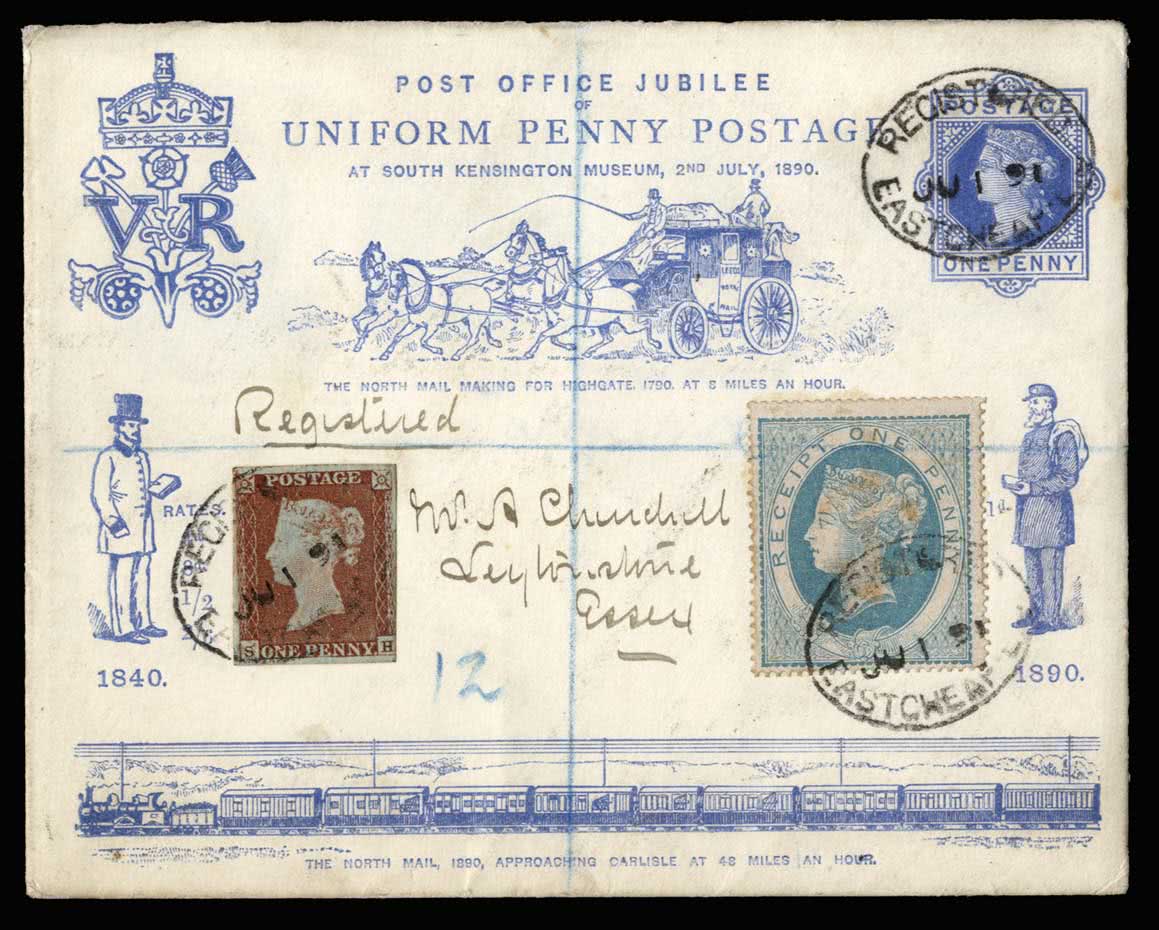 POST OFFICE JUBILEE
OF
UNIFORM PENNY POSTAGE
AT SOUTH KENSINGTON MUSEUM, 2ND JULY, 1890.
VR
POSTAGE
ONE PENNY
REGISTERED
JU 1 91
EASTCHEAP
LEEDS
ROYAL
MAIL
THE NORTH MAIL MAKING FOR HIGHGATE, 1790. AT 8 MILES AN HOUR.
Registered
RATES.
1/2
1d.
POSTAGE
ONE PENNY
S H
JU 1 91
Mr. A Churchill
Leytonstone
Essex
RECEIPT ONE PENNY
REGISTE
JU 1 91
EASTCHEAP
12
1840.
1890.
THE NORTH MAIL, 1890, APPROACHING CARLISLE AT 48 MILES AN HOUR.